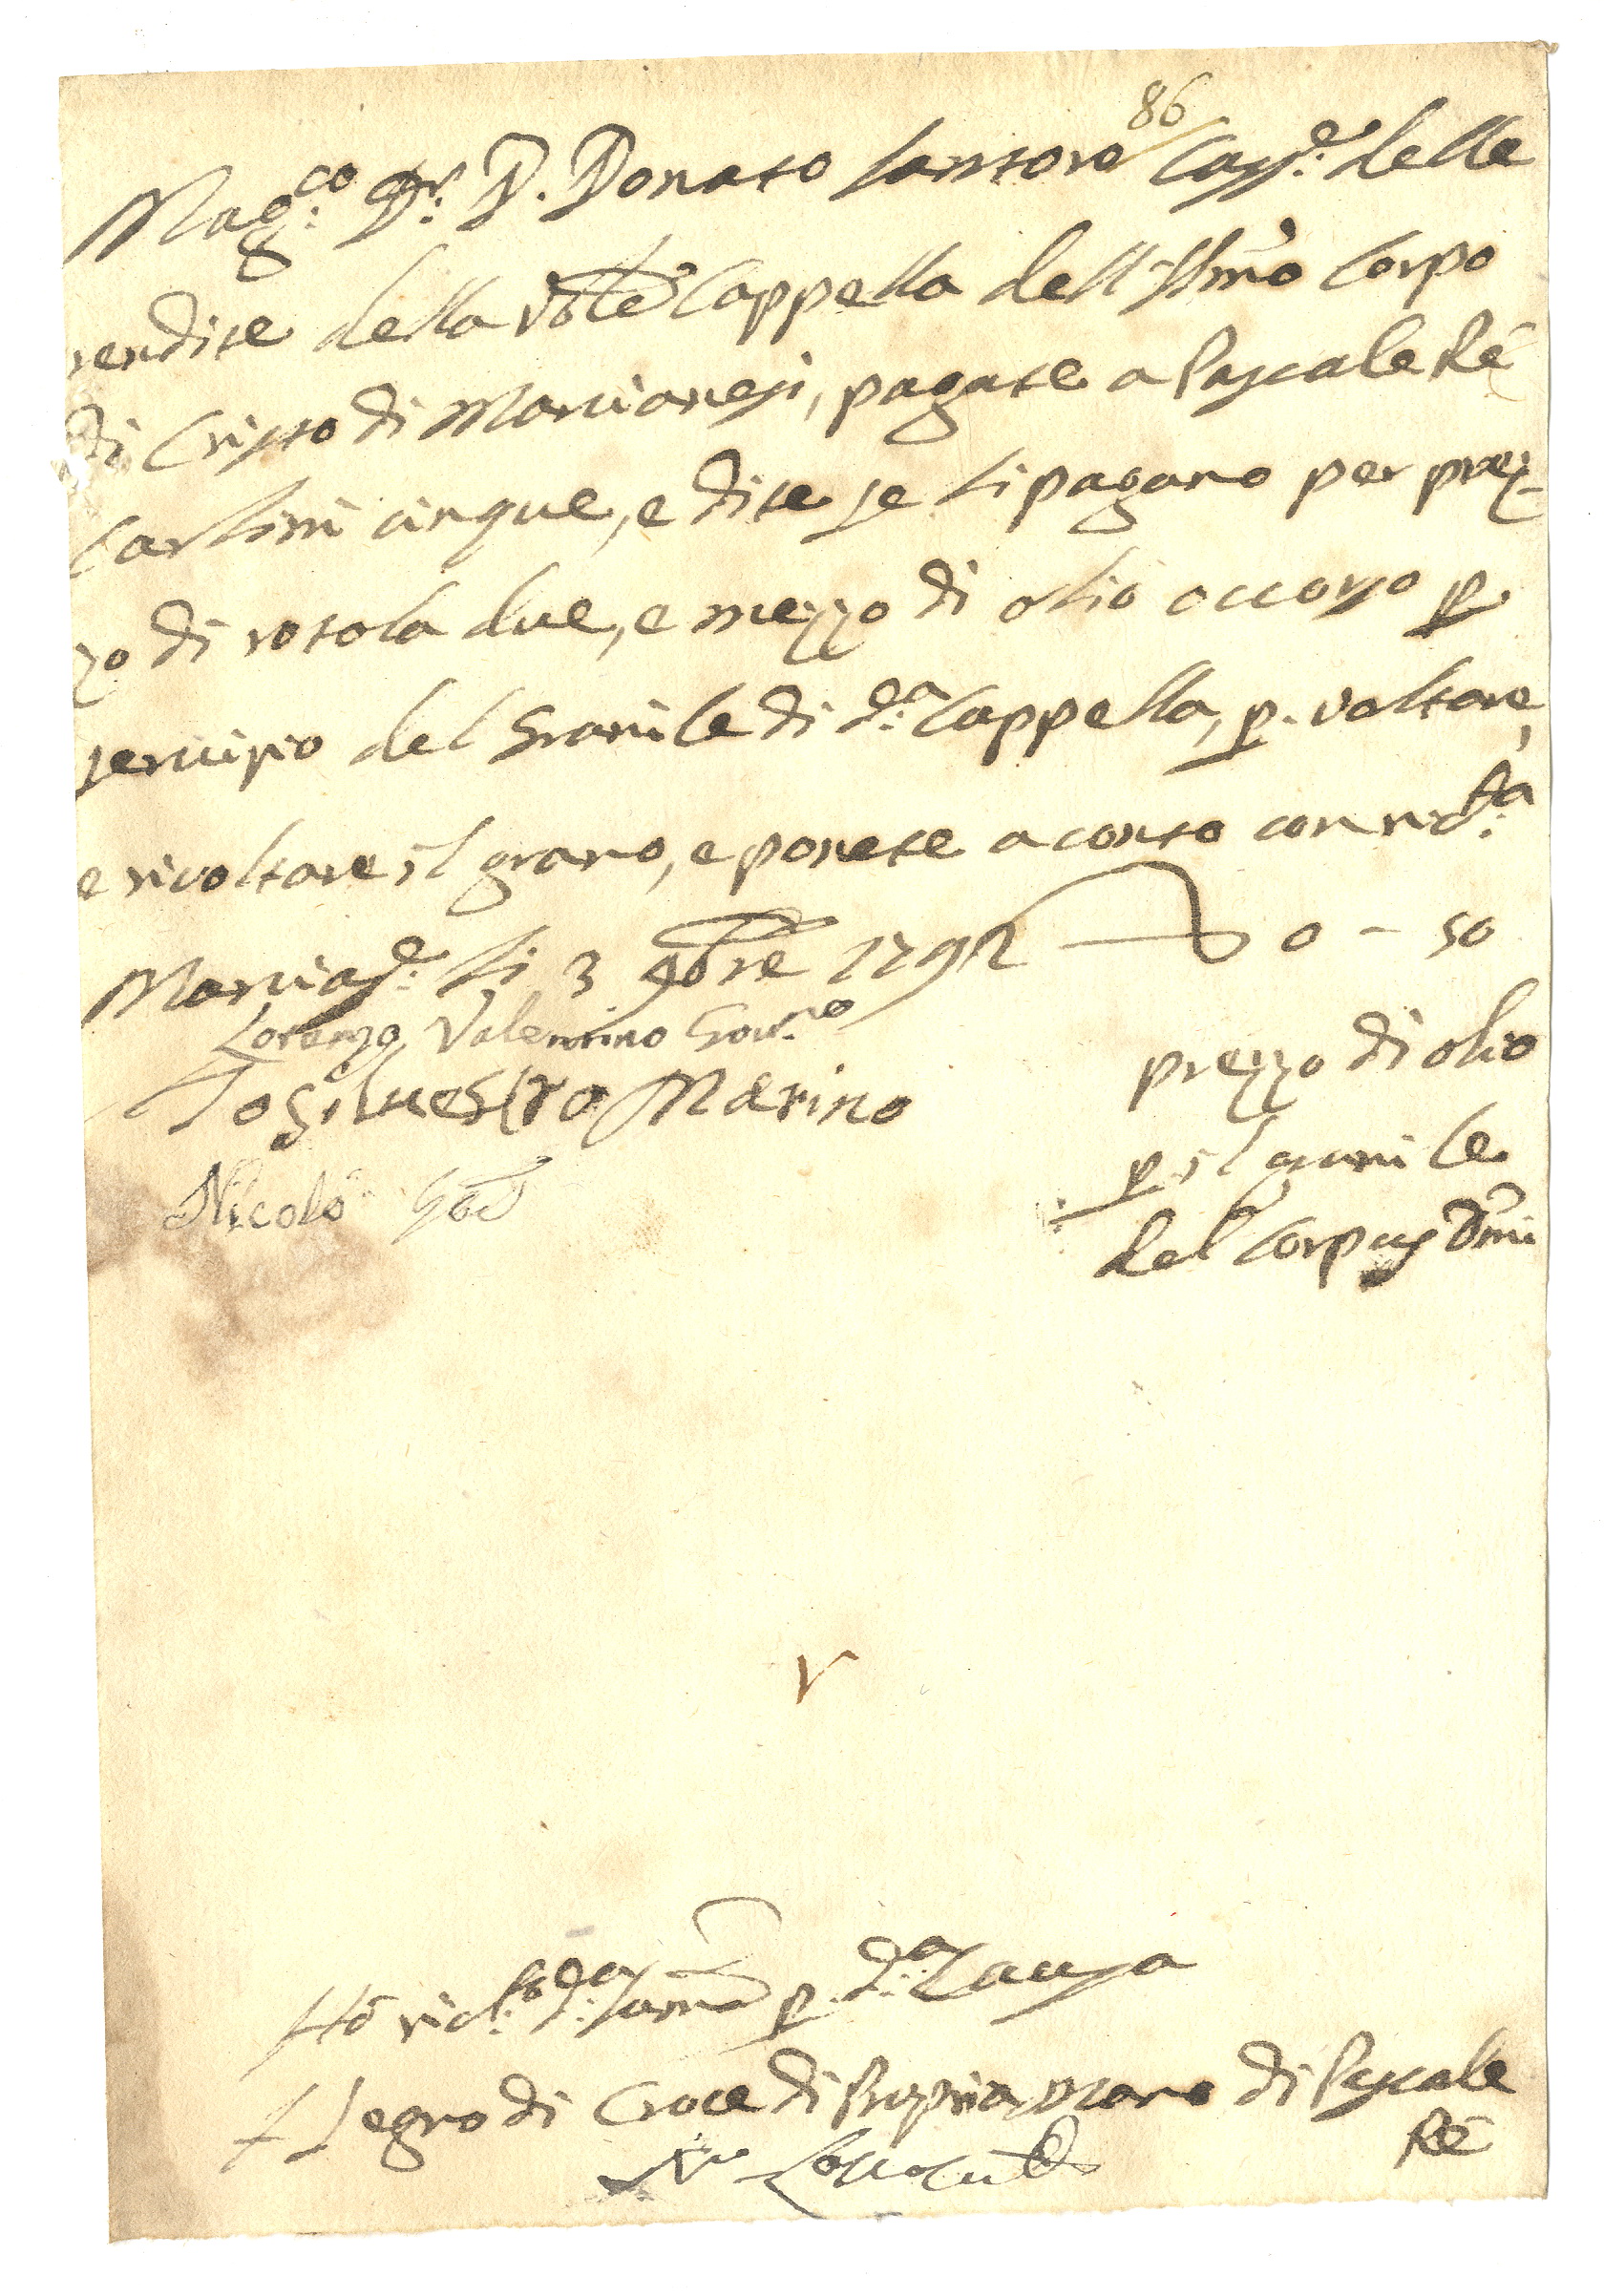 86
Mag:co Dr: D. Donato Santoro Cass:e delle
rendite della Cappella dell SSmo Corpo
di Cristo di Marcianesi, pagate a Pascale Ré
Carlini cinque, e dite se li pagano per prez-
zo di rotola due, e mezzo di olio occorso p.
servizio del Granile di d:a Cappella, p. voltare,
e rivoltare il grano, e ponete a conto con ric:ta
Marcia:e li 3 9bre 1792 0 - 50
Lorenzo Valentino Gov:re
Io Silvestro Marino
Nicolò
prezzo di olio
p. il granile
del Corpus Dmi
Hò ric:to d:a somma p. d:a Causa
+ Segno di Croce di Propria mano di Pascale
Ré